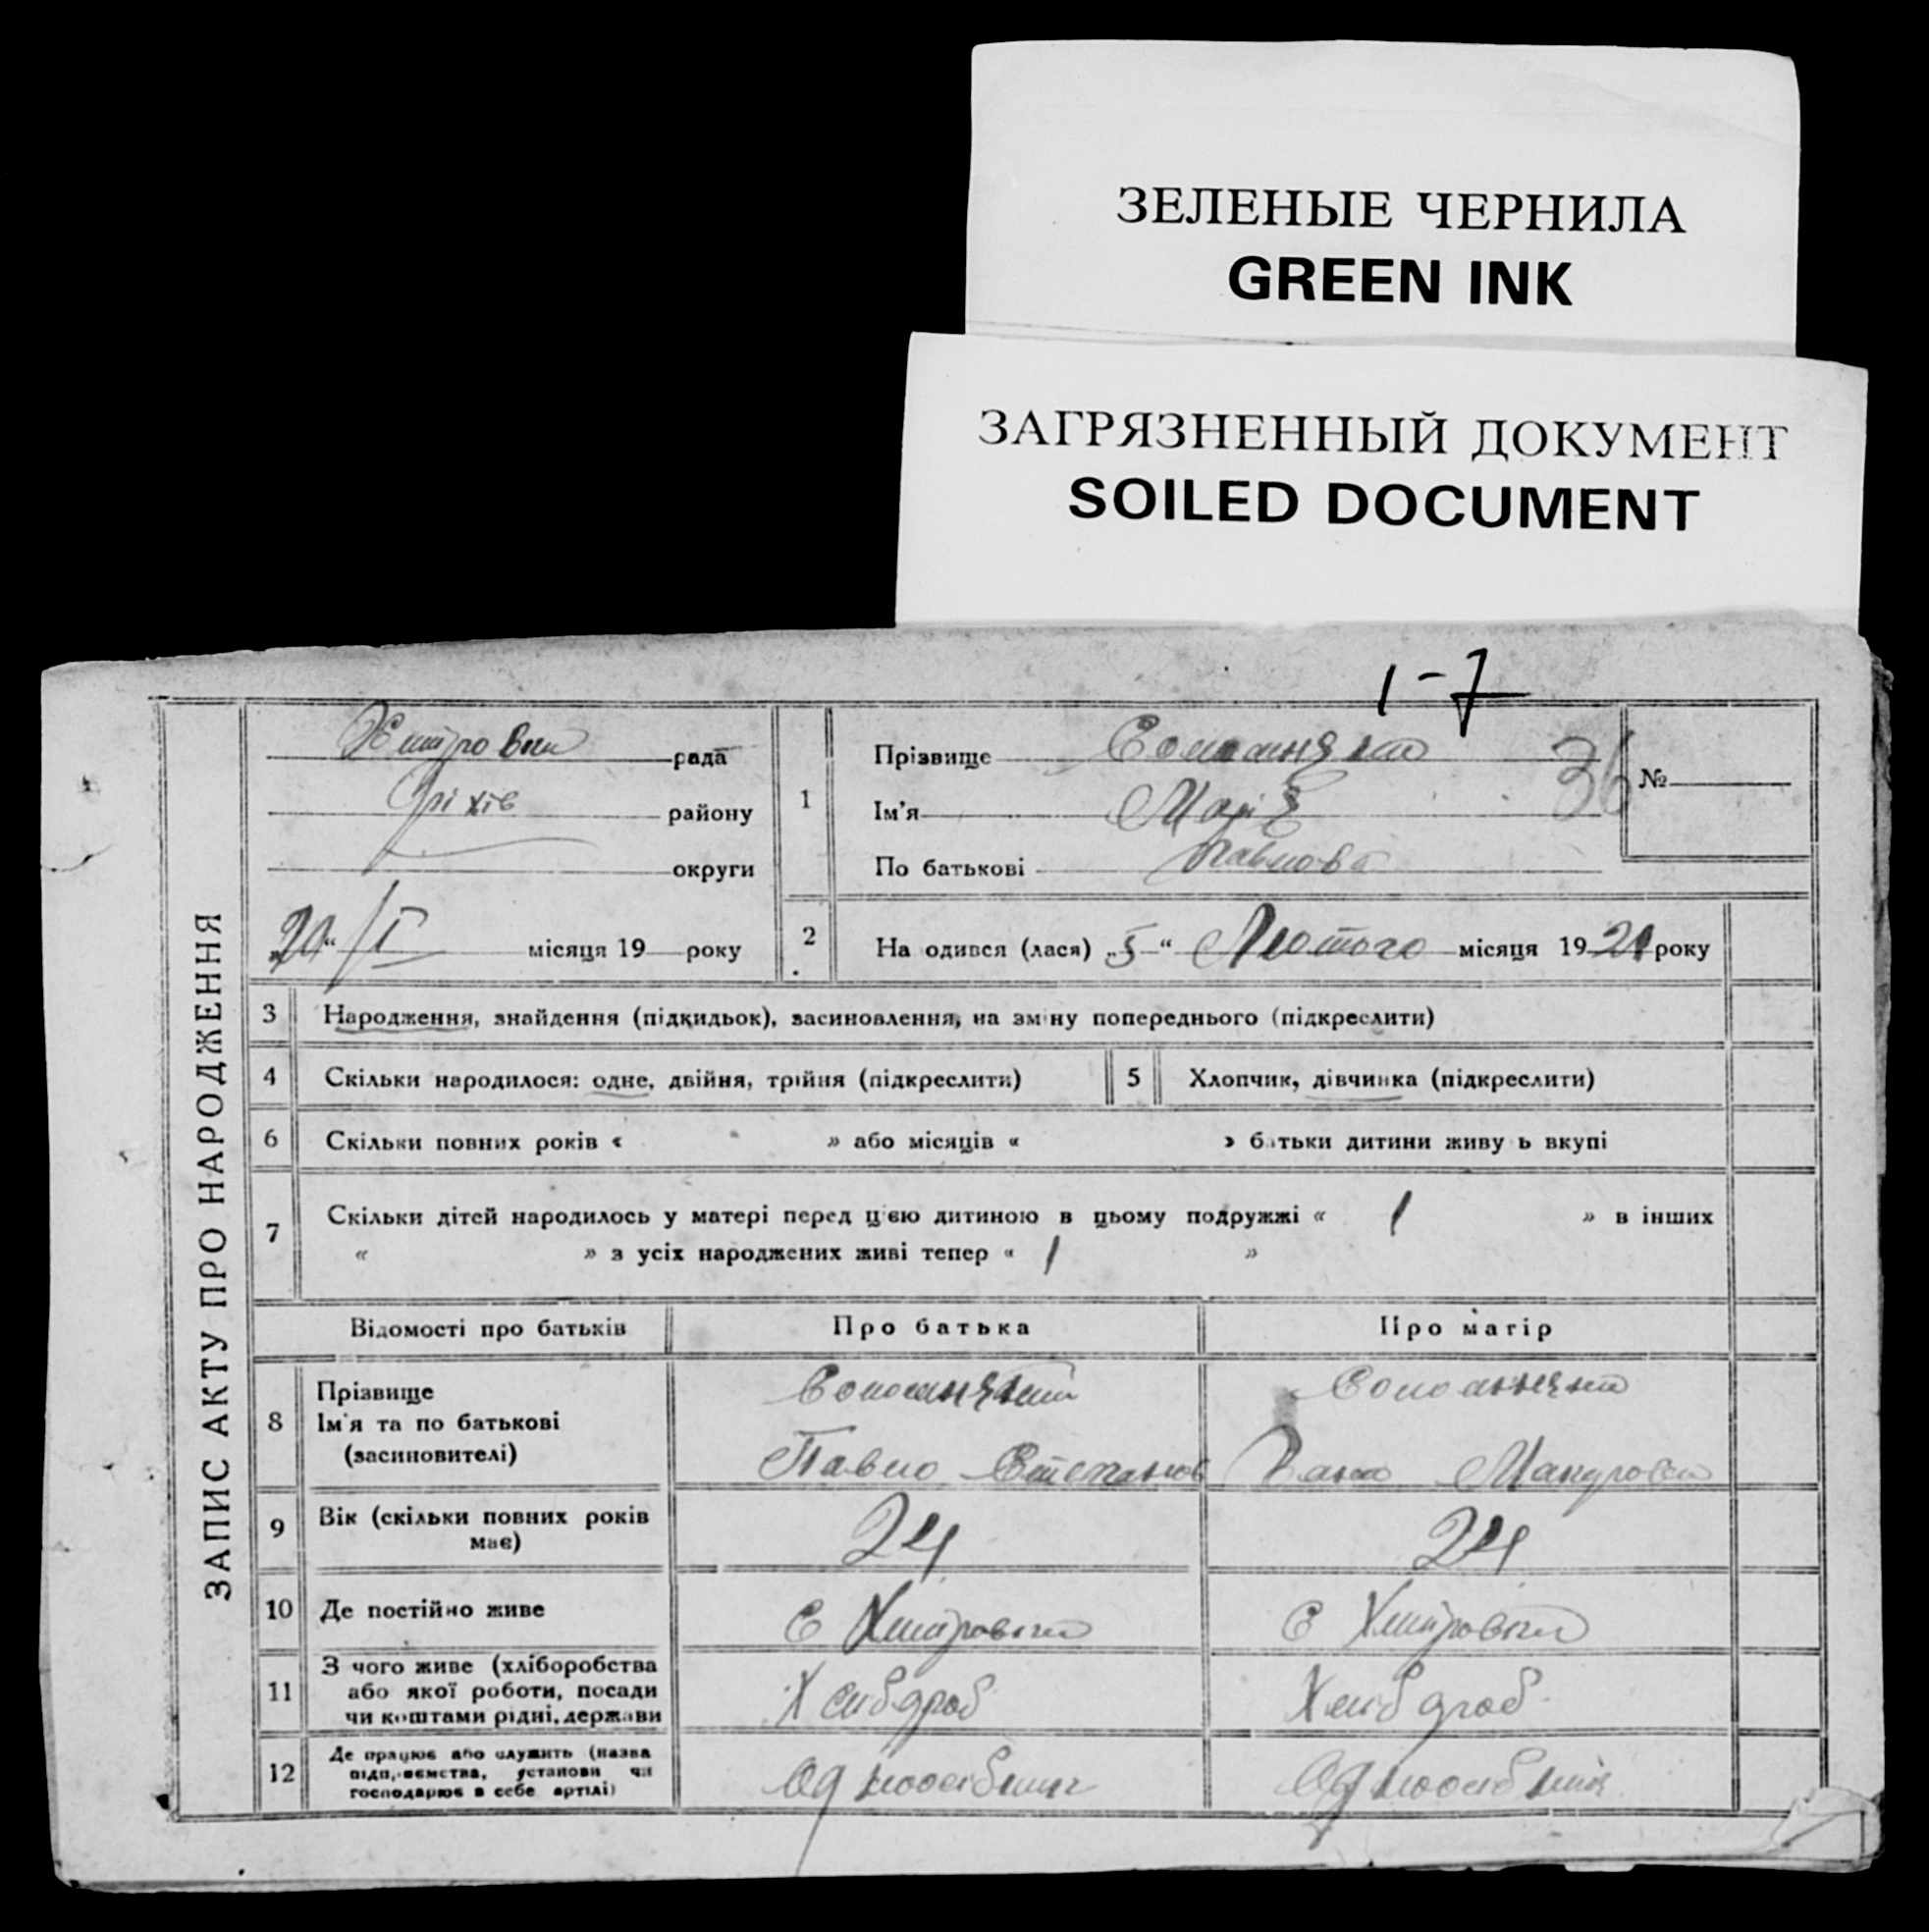 ЗЕЛЕНЫЕ ЧЕРНИЛА
GREEN INK
ЗАГРЯЗНЕННЫЙ ДОКУМЕНТ
SOILED DOCUMENT
1-7
ЗАПИС АКТУ ПРО НАРОДЖЕННЯ
рада
Оріхів району
округи
20 " / I місяця 19 року
1
Прізвище
Ім'я Марія
По батькові Павлова
36 №
2
На одився (лася) „5" Лютого місяця 19 року
3 Народження, знайдення (підкидьок), засиновлення, на зміну попереднього (підкреслити)
4 Скільки народилося: одне, двійня, трійня (підкреслити) 5 Хлопчик, дівчинка (підкреслити)
6 Скільки повних років « » або місяців « » батьки дитини живу ь вкупі
7 Скільки дітей народилось у матері перед цією дитиною в цьому подружжі « 1 » в інших
« » з усіх народжених живі тепер « 1 »
Відомості про батьків Про батька Про матір
8 Прізвище
Ім'я та по батькові
(засиновителі) Павло Степанов
9 Вік (скільки повних років має) 24 24
10 Де постійно живе С С
11 З чого живе (хліборобства
або якої роботи, посади
чи коштами рідні, держави Хлібороб Хлібороб
12 Де працює або служить (назва
підприємства, установи чи
господарює в себе артілі) Одноосібник